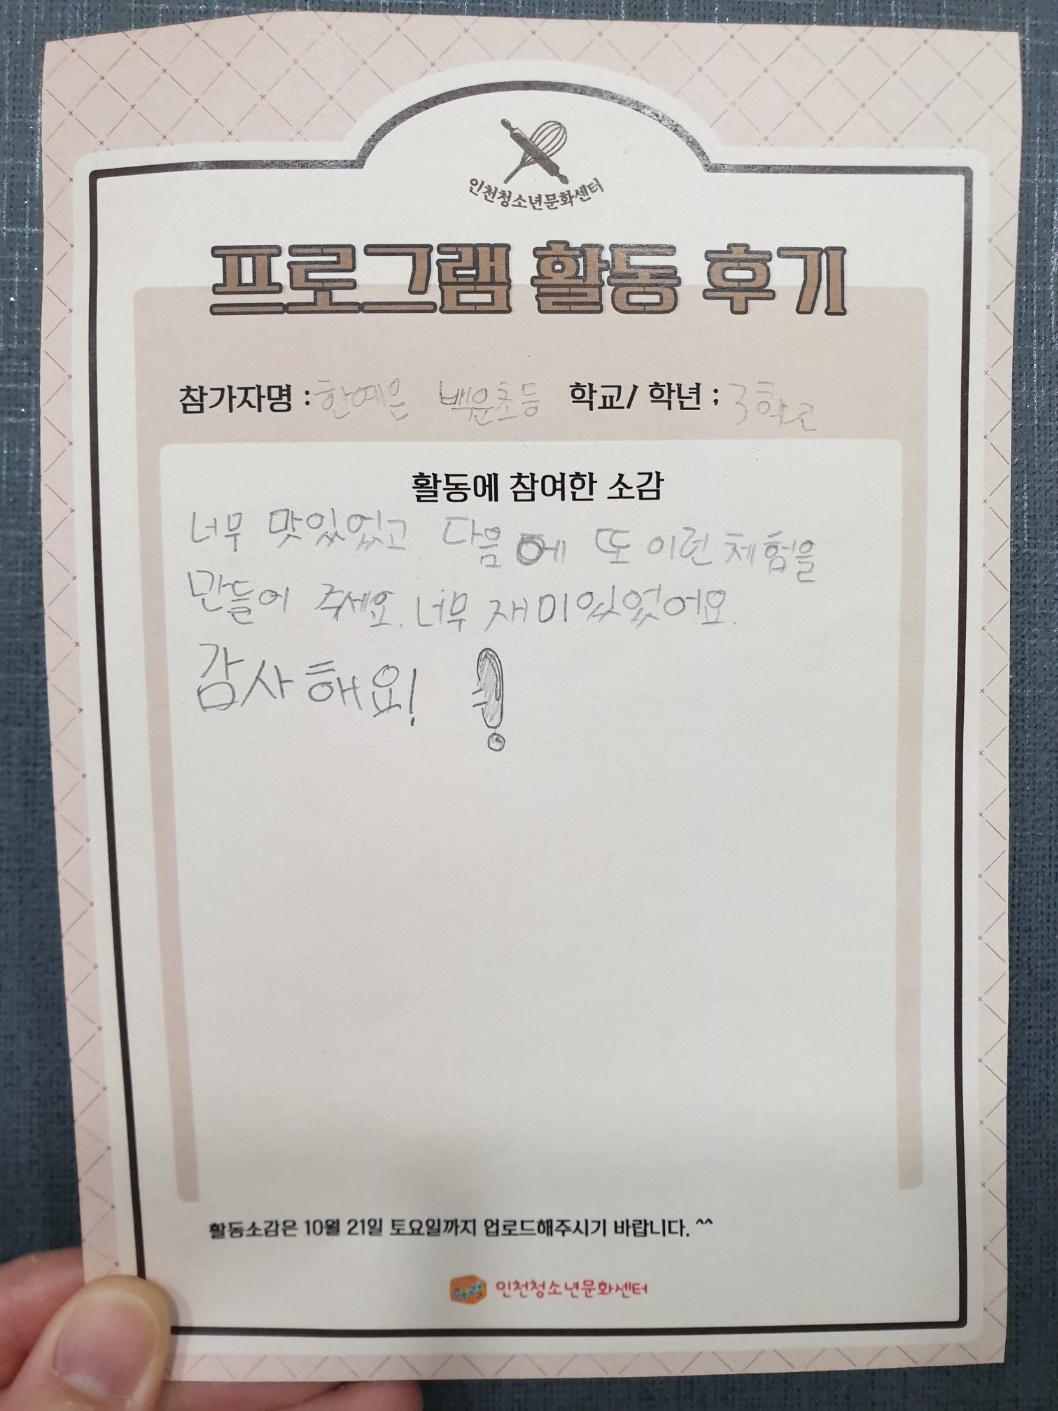 인천청소년문화센터
프로그램 활동 후기
참가자명 : 한예은 백운초등 학교/ 학년 : 3학년
활동에 참여한 소감
너무 맛있있고 다음에 또 이런 체험을
만들어 주세요. 너무 재미있었어요.
감사해요! !
활동소감은 10월 21일 토요일까지 업로드해주시기 바랍니다. ^^
인천청소년문화센터